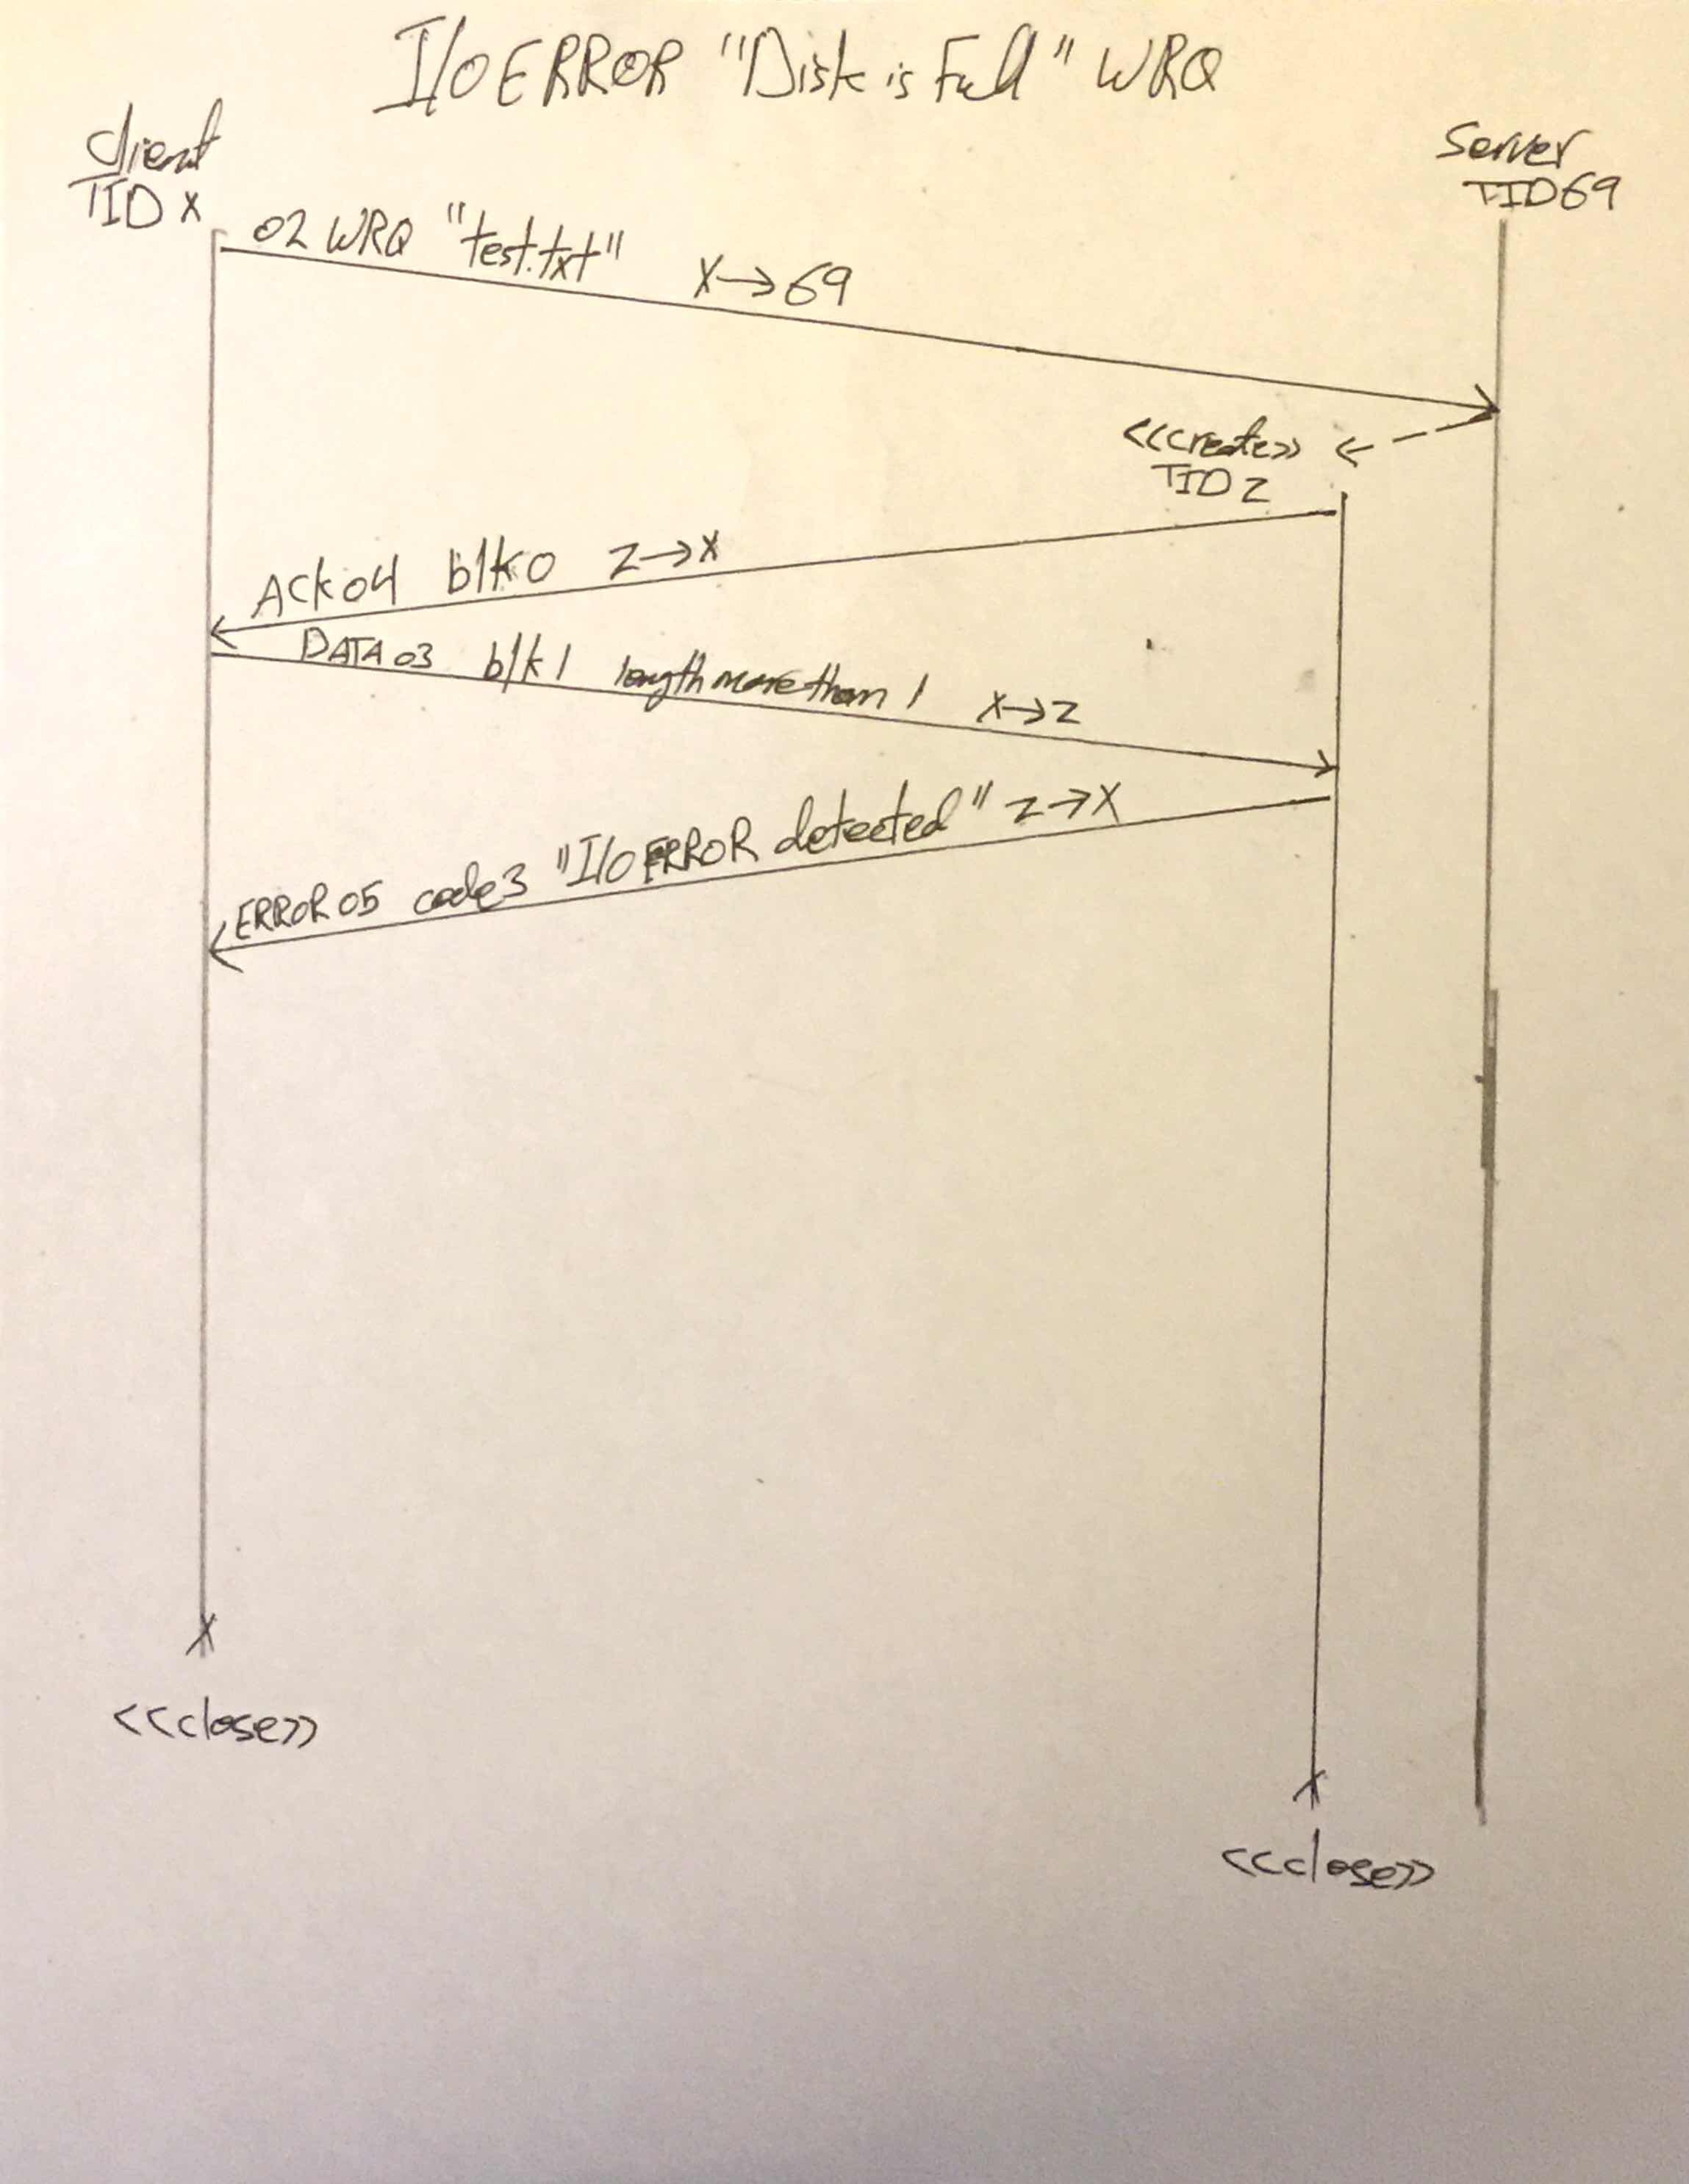 I/O ERROR "Disk is Full" WRQ
client
TID X
Server
TID69
02 WRQ "test.txt" X→69
<<create>>
TID Z
ACK 04 blk0 Z→X
DATA 03 blk1 length more than 1 X→Z
ERROR 05 code3 "I/O ERROR detected" Z→X
<<close>>
<<close>>